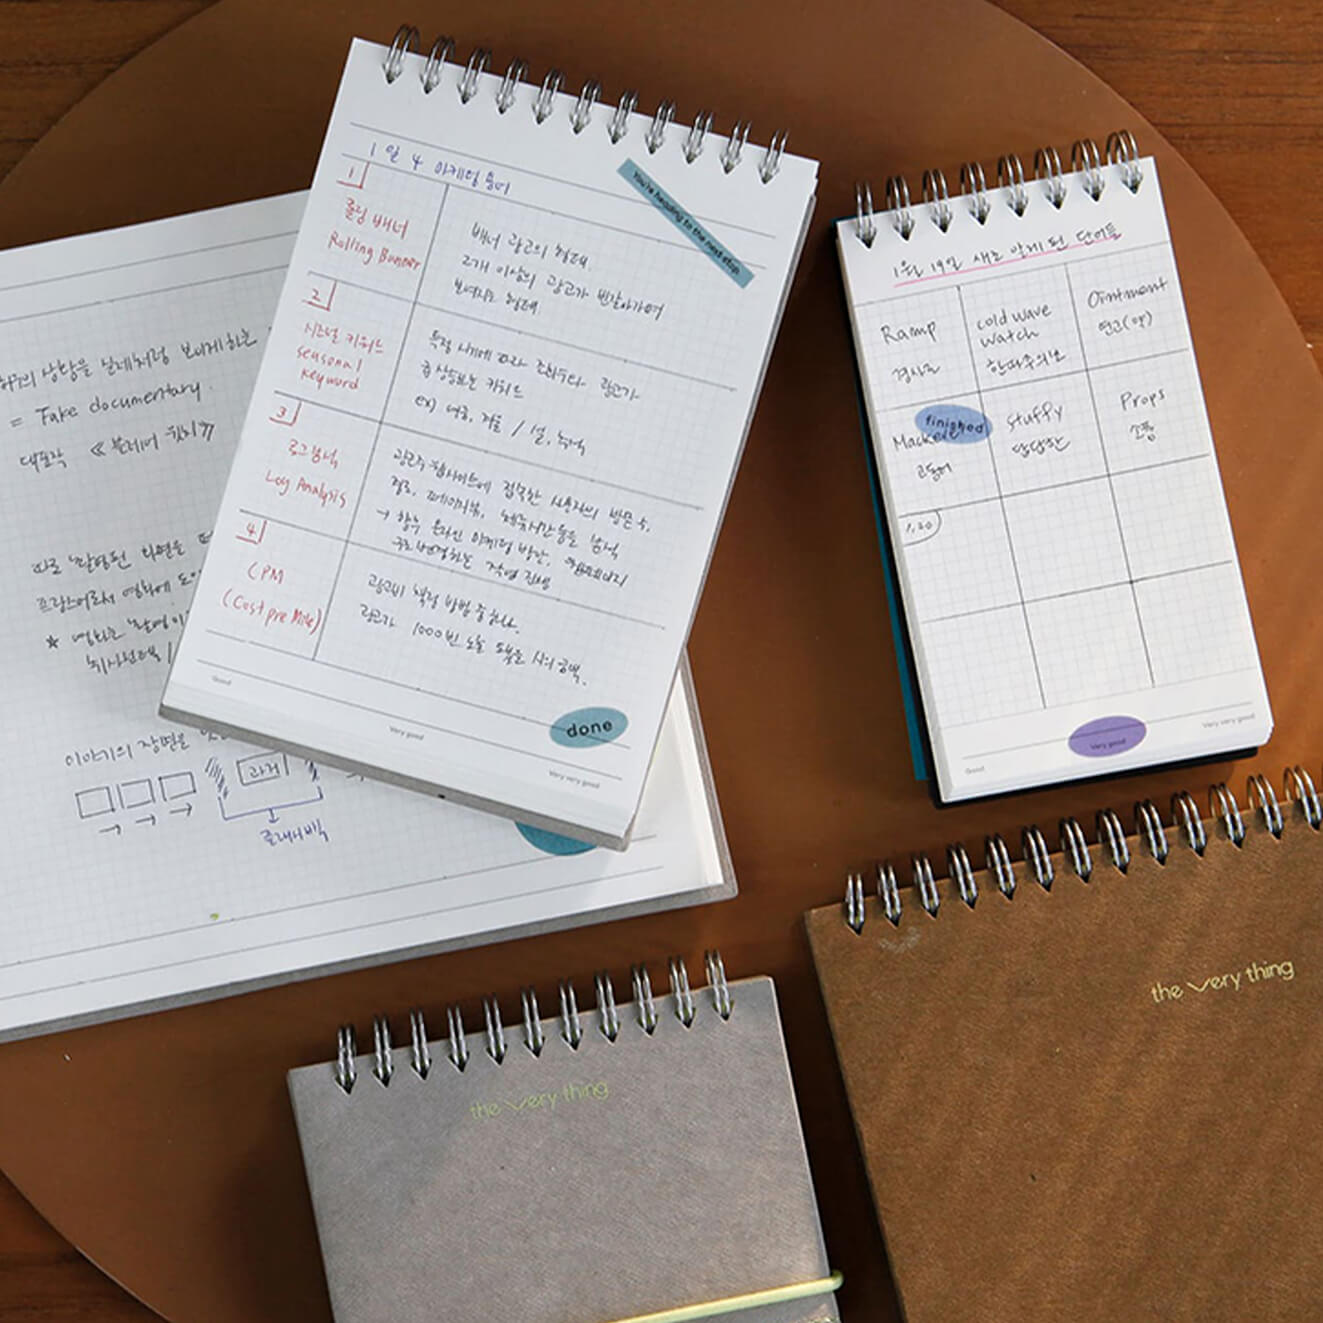 1일 4 마케팅 용어
You're heading to the next stop.
1
롤링 배너
Rolling Banner
배너 광고의 형태.
2개 이상의 광고가 번갈아가며
보여지는 형태
2
시즈널 키워드
seasonal
keyword
특정 시기에 따라 조회수나 광고가
급상승하는 키워드
ex) 여름, 겨울 / 설, 추석
3
로그분석
Log Analysis
광고주 웹사이트에 접속한 사용자의 방문 수,
경로, 페이지뷰, 체류시간 등을 분석
→ 향후 온라인 마케팅 방안,
진행
4
CPM
(Cost pre Mile)
광고비 책정 방법 중 하나.
광고가 1000번 노출 됐을 시의 금액.
Good
Very good
Very very good
done
1월 19일 새로 알게 된 단어들
Ramp
경사로
cold wave
watch
한파주의보
Ointment
연고(약)
finished
고등어
stuffy
답답한
Props
소품
1.20
Good
Very good
Very very good
상황을 실제처럼 보이게 하는
= Fake documentary.
대표작 《블레어 위치》
이야기의 장면을
과거
플래시백
the very thing
the very thing